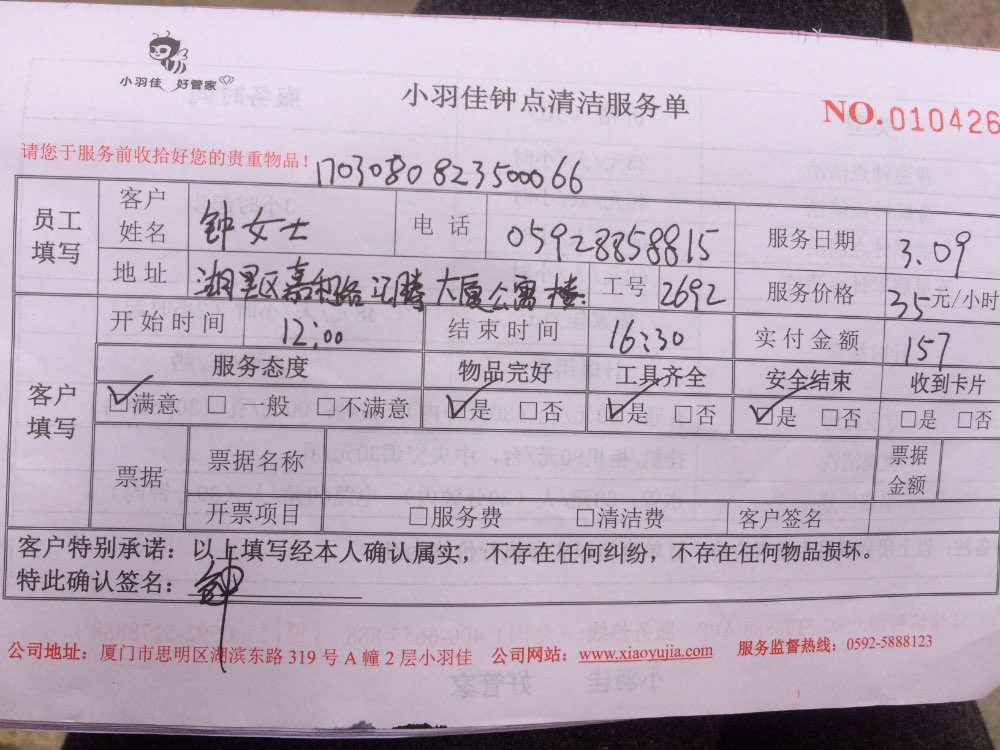 小羽佳 好管家
小羽佳钟点清洁服务单
NO.010426
请您于服务前收拾好您的贵重物品！
1703080823500066
员工填写 客户姓名 钟女士 电话 05928858815 服务日期 3.09
地址 湖里区嘉禾路江腾大厦公寓楼 工号 2692 服务价格 35元/小时
开始时间 12:00 结束时间 16:30 实付金额 157
客户填写 服务态度 物品完好 工具齐全 安全结束 收到卡片
☑满意 □一般 □不满意 ☑是 □否 ☑是 □否 ☑是 □否 □是 □否
票据 票据名称 票据金额
开票项目 □服务费 □清洁费 客户签名
客户特别承诺：以上填写经本人确认属实，不存在任何纠纷，不存在任何物品损坏。
特此确认签名：钟
公司地址：厦门市思明区湖滨东路 319 号 A 幢 2 层小羽佳 公司网站：www.xiaoyujia.com 服务监督热线：0592-5888123